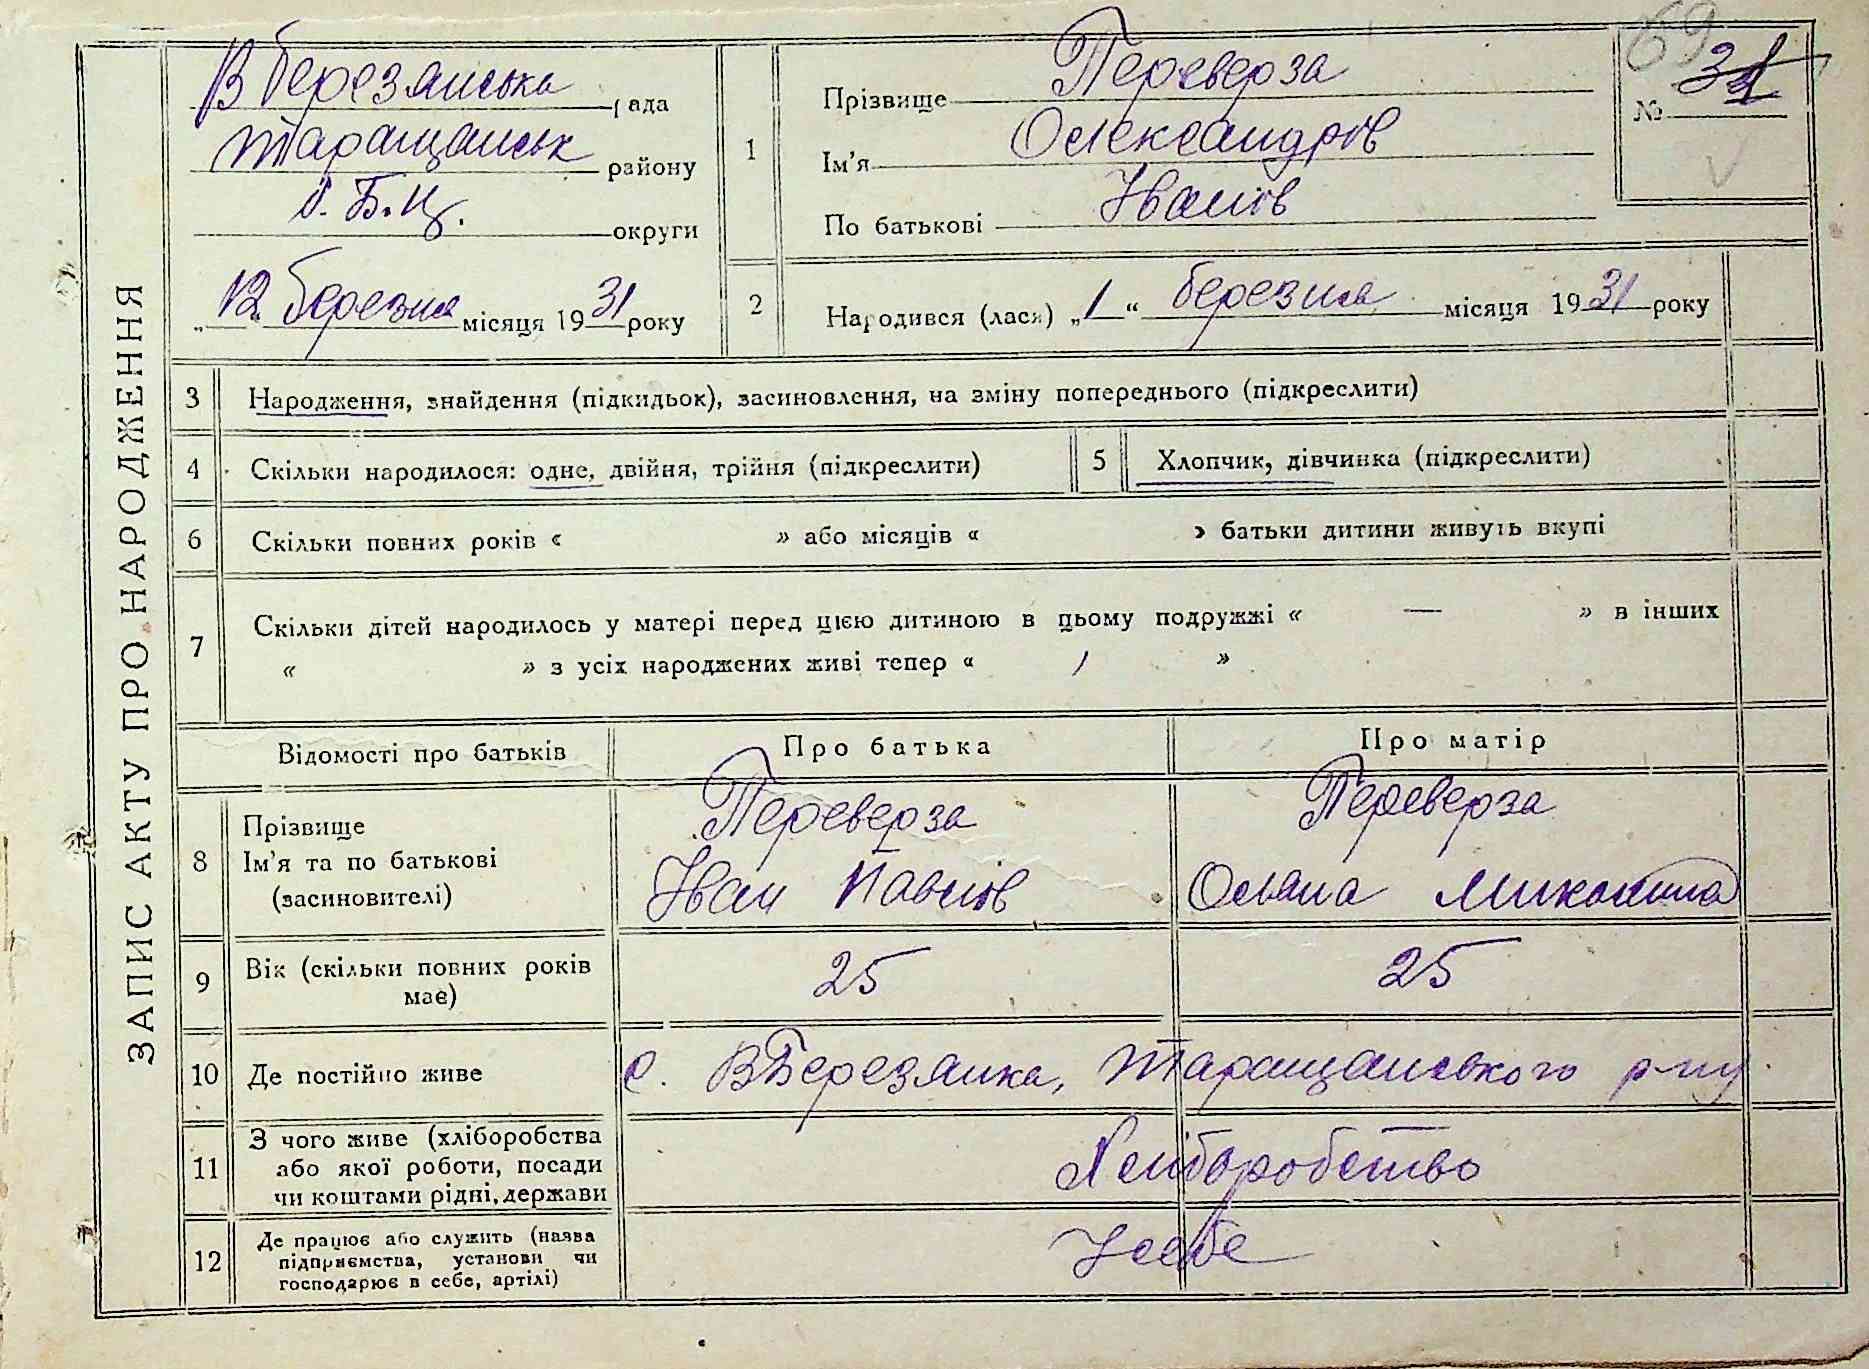 ЗАПИС АКТУ ПРО НАРОДЖЕННЯ
В березянська рада
Таращанськ району
Б.Ц. округи
„12“ березня місяця 1931 року
1
Прізвище Переверза
Ім'я Олександров
По батькові Іванов
69
№ 31
2
Народився (лася) „1“ березня місяця 1931 року
3 Народження, знайдення (підкидьок), засиновлення, на зміну попереднього (підкреслити)
4 Скільки народилося: одне, двійня, трійня (підкреслити)
5 Хлопчик, дівчинка (підкреслити)
6 Скільки повних років « » або місяців « » батьки дитини живуть вкупі
7 Скільки дітей народилось у матері перед цією дитиною в цьому подружжі « — » в інших
« » з усіх народжених живі тепер « 1 »
Відомості про батьків Про батька Про матір
8
Прізвище Переверза Переверза
Ім'я та по батькові Іван Павлов Оляна
(засиновителі)
9 Вік (скільки повних років 25 25
має)
10 Де постійно живе с. ВБерезянка, Таращанського р-ну
11
З чого живе (хліборобства
або якої роботи, посади Хліборобство
чи коштами рідні, держави
12
Де працює або служить (назва
підприємства, установи чи Усебе
господарює в себе, артілі)